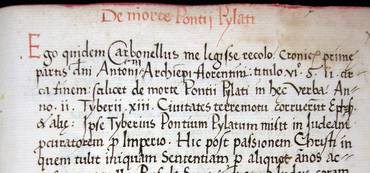 De morte Pontij Pylati
Ego quidem Carbonellus me legisse recolo Cronice prime
partis dni Antonini Archiepi florentini titulo vi° §. ii. circa
ca finem: scilicet de morte Pontij Pilati in hec verba An-
no. ii. Tyberij. xiii. Ciuitates terremotu corruerunt Ephesi
& alie: Ipse Tyberius Pontium Pylatum misit in Iudeam
pcuratorem p Imperio. Hic post passionem Christi in
quem tulit iniquam Sententiam p aliquot años ac-